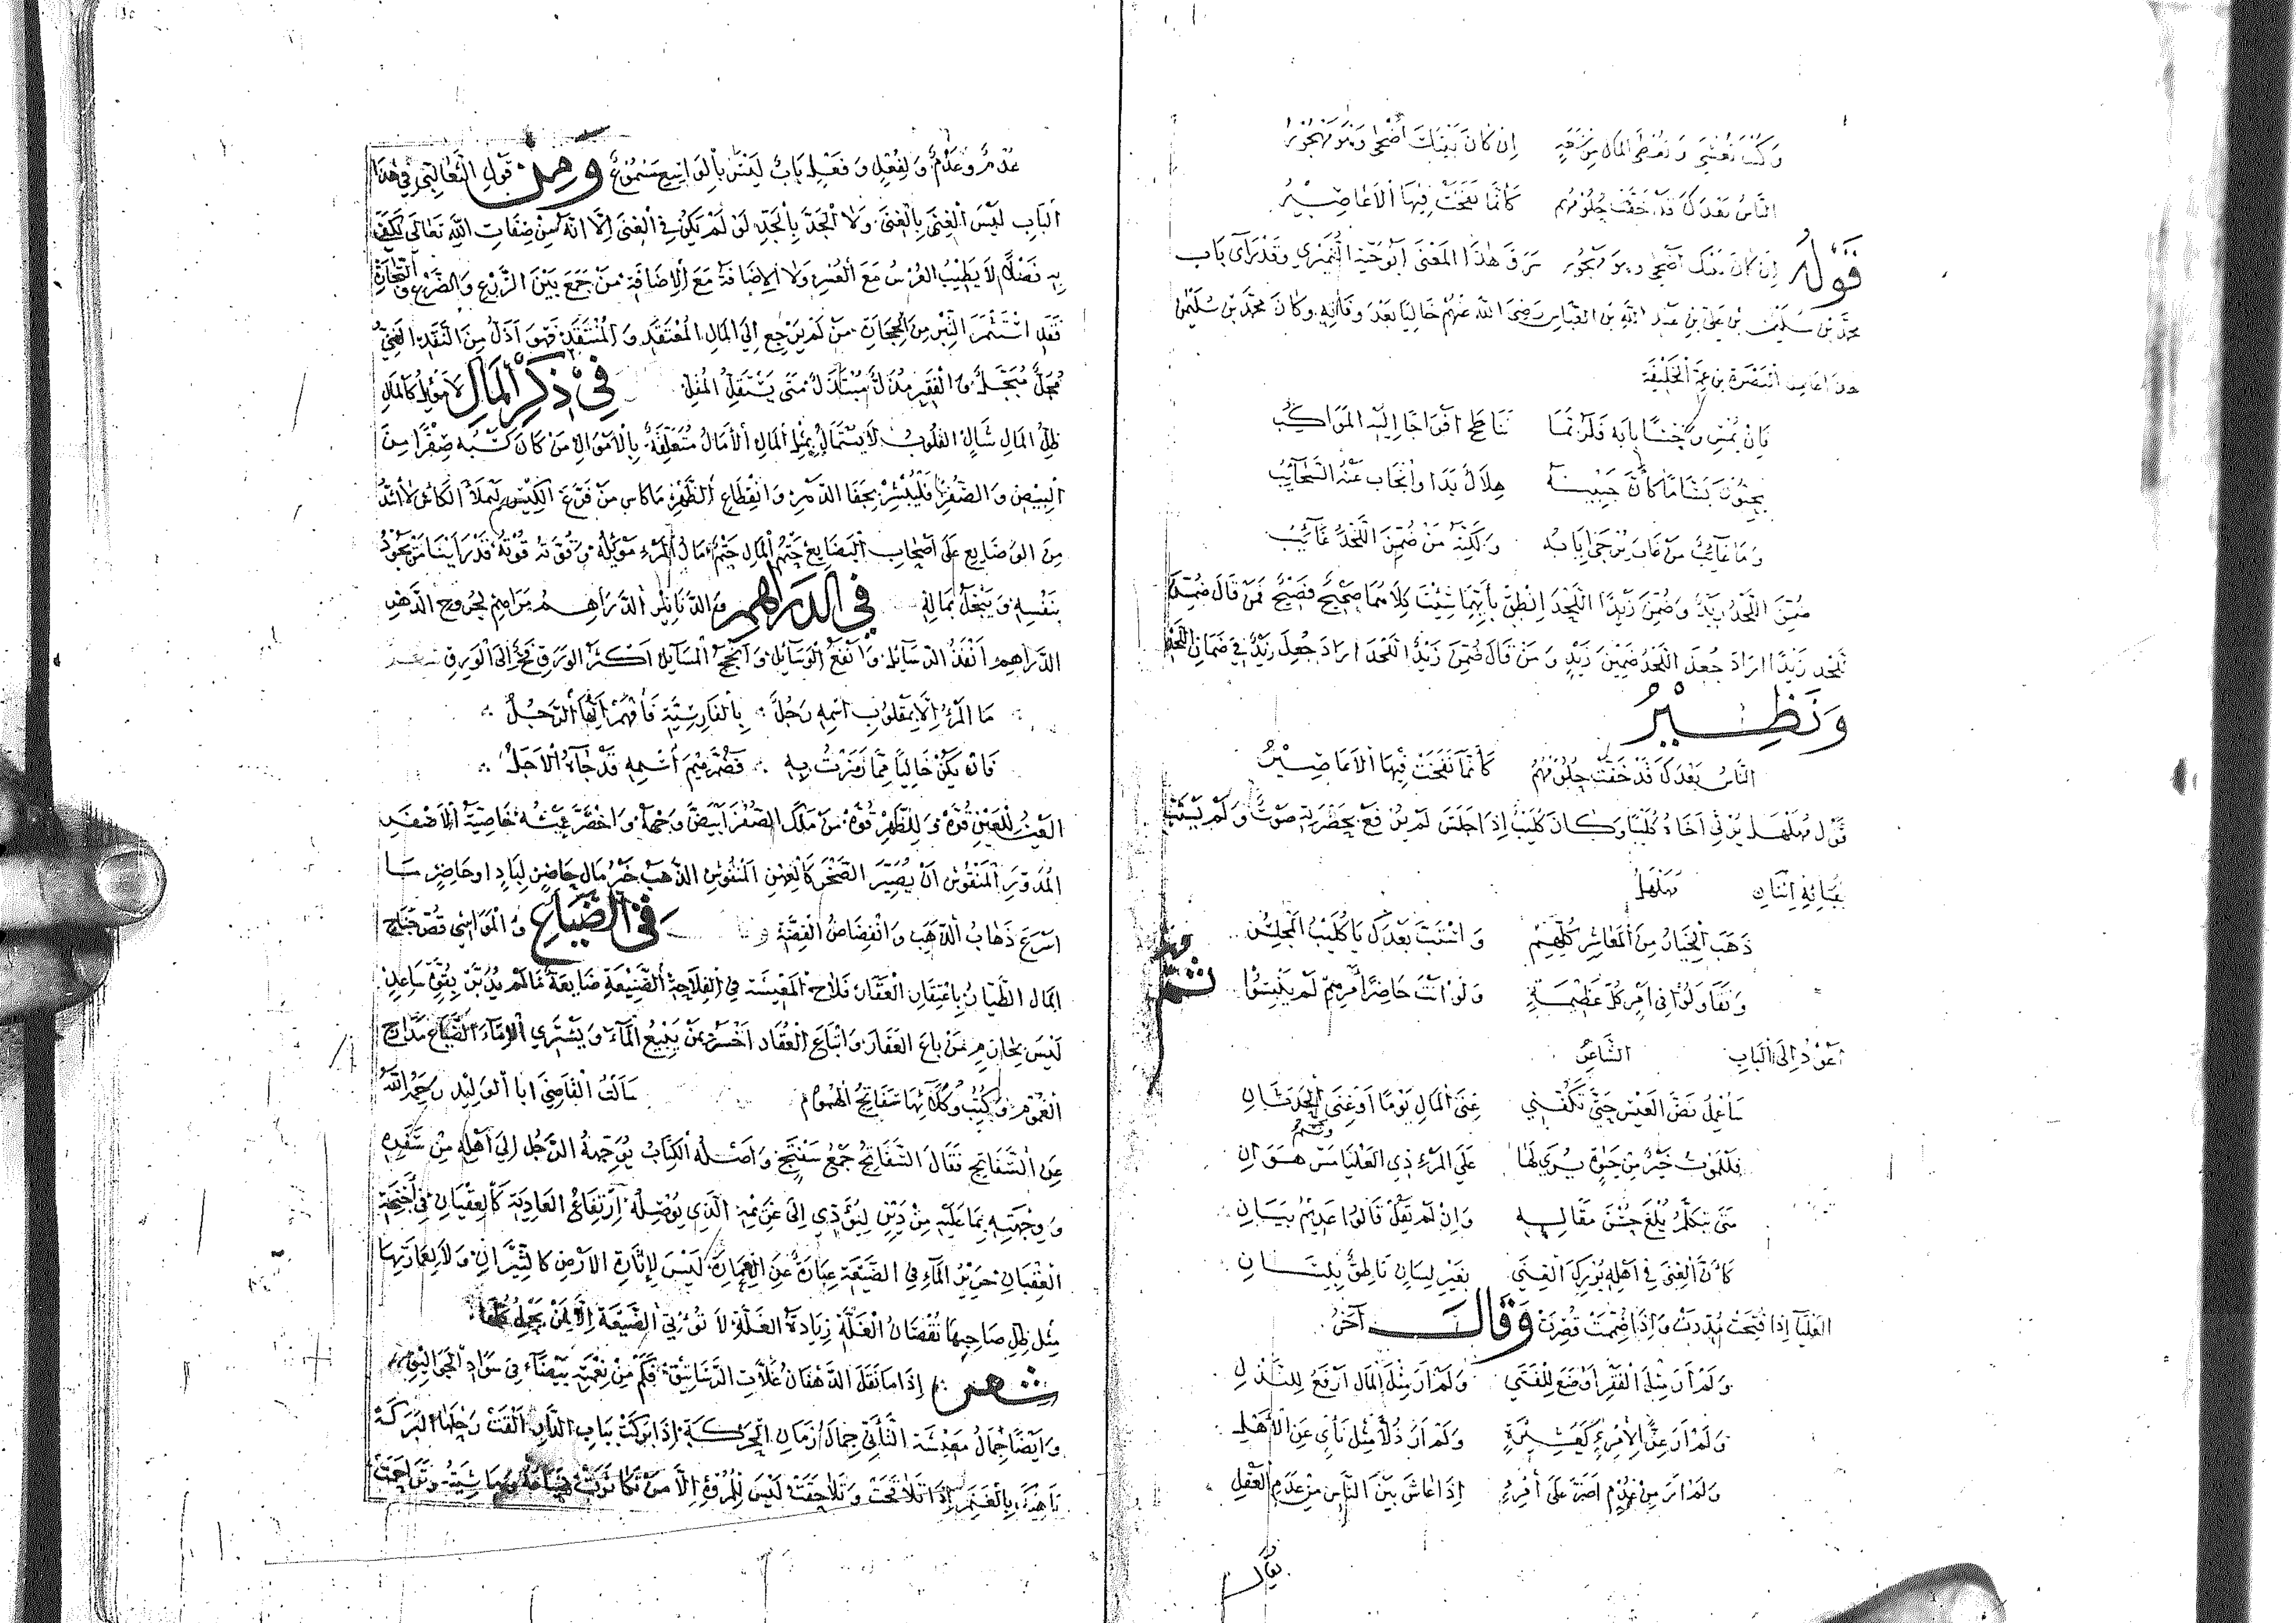 وكنت تغشى وتعطى المال من سعة إن كان بيتك أضحى وهو مهجور
الناس بعدك قد خفت حلومهم كأنما نفخت فيها الأعاصير
قوله إن كان بيتك أضحى وهو مهجور سرق هذا المعنى أبو حية النميري وقد رأى باب
محمد بن سليمان بن علي بن عبد الله بن العباس رضي الله عنهم خاليا بعد وفاته وكان محمد بن سليمان
البصرة بن عم الخليفة
فإن يمس وحشا بابه فلربما تناطح أفواجا إليه المواكب
يحيون بساما كأن جبينه هلال بدا وانجاب عنه السحائب
وما غائب من غاب يرجى إيابه ولكنه من ضمن اللحد غائب
ضمن اللحد زيد وضمن زيدا اللحد انطق بأيهما شئت كلاهما صحيح فصيح فمن قال ضمن
اللحد زيدا أراد جعل اللحد ضمين زيد ومن قال ضمن زيد اللحد أراد جعل زيد في ضمان اللحد
ونظير
الناس بعدك قد خفت حلومهم كأنما نفخت فيها الأعاصير
قول مهلهل يرثي أخاه كليبا وكان كليب إذا جلس لم يرفع بحضرته صوت ولم يستب
بفنائه اثنان مهلهل
ذهب الخيار من المعاشر كلهم واستب بعدك يا كليب المجلس
وتقاولوا في أمر كل عظيمة ولو أنت حاضر أمرهم لم ينبسوا
أعود إلى الباب الشاعر
سأعمل نص العيس حتى تكفني غنى المال يوما أو غنى الحدثان
فللموت خير من حياة يرى لها على المرء ذي العليا مس هوان
متى يتكلم يلغ حسن مقاله وإن لم يقل قالوا عديم بيان
كأن الغنى في أهله بورك الغنى بغير لسان ناطق بلسان
العليا إذا فتحت مدت وإذا ضمت قصرت وقال آخر
ولم أر مثل الفقر أوضع للفتى ولم أر مثل المال أرفع للنذل
ولم أر عزا لامرئ كعشيرة ولم أر ذلا مثل نأي عن الأهل
ولم أر من عدم أضر على امرئ إذا عاش بين الناس من عدم العقل
يقال
عدم وعدم ولفعل وفعل باب ليس بالواسع مسموع ومن قول الثعالبي في هذا
الباب ليس الغنى بالغنى ولا الجد بالجد لو لم يكن في الغنى إلا أنه من صفات الله تعالى لكفى
به فضلا لا يطيب العرس مع العسر ولا الإضافة مع الإضاقة من جمع بين الزرع والضرع والتجارة
فقد استثمر التبر من الحجارة من لم يرجع إلى المال المعتقد والمنتقد فهو أذل من النقد الغني
مجل مبجل والفقير مذل مبتذل متى يستقل المقل في ذكر المال لا مؤيل كالمال
ظل المال شال القلوب لا يستمال بمثل المال الآمال متعلقة بالأموال من كان كسبه صفرا من
البيض والصفر فليبشر بجفا الدهر وانقطاع الظهر ما كاس من فرغ الكيس ليملأ الكاس لا أشد
من الوضايع على أصحاب البضايع ختم المال حتم مال المرء موئله وقوته قوته قد رأينا من يجود
بنفسه ويبخل بماله في الدراهم والدنانير الدراهم مراهم لجروح الدهر
الدراهم أنفذ الرسائل وأنفع الوسائل وأنجح المسايل أكثر الورى فقر إلى الورق
ما المرء إلا بمقلوب اسمه رجل بالفارسية فافهم أيها الرجل
فإن يكن خاليا مما رمزت به فضم ميم اسمه قد جاءه الأجل
العين للعين قرة وللظهر قوة من ملك الصفر ابيض وجهه واخضر عيشه خاصية الأصفر
المدور المنقوش أن يصير الصخر كالعهن المنفوش الذهب خير مال حاضر لباد أو حاضر ما
أسرع ذهاب الذهب وانفضاض الفضة في الضياع والمواشي قص جناح
المال الطيار باعتقار العقار فلاح المعيشة في الفلاحة الضيعة ضايعة ما لم يدبر بقوى ساعد
ليس بحازم من باع العقار وابتاع العقار أخسر من يبيع الماء ويشتري الإماء الضياع مدارج
الغموم وكتب وكلائها سفاتج الهموم سألت القاضي أبا الوليد رحمه الله
عن السفاتج فقال السفاتج جمع سفتج وأصله الكتاب يوجهه الرجل إلى أهله من سفره
ووجهته بما عليه من دين ليؤدي إلى غريمه الذي يوصله ارتفاع العادية كالعقيان في أجنحة
العقبان حرير الماء في الضيعة عبارة عن العمارة ليس لإثارة الأرض كالثيران ولا لعمارتها
مثل ظل صاحبها نقصان الغلة زيادة الغلة لا تؤتي الضيعة إلا لمن يحمل كلها
شعر إذا ما نقل الدهقان غلات الرساتيق فكم من نعمة بيضاء في سواد
وأيضا جمال معيشة النائي جمال زمان الحركة إذا بركت بباب الدار ألقت رحلها البركة
ناهيك بالغنم إذا تلاقحت وتلاحقت ليس للمروة إلا من تكاثرت